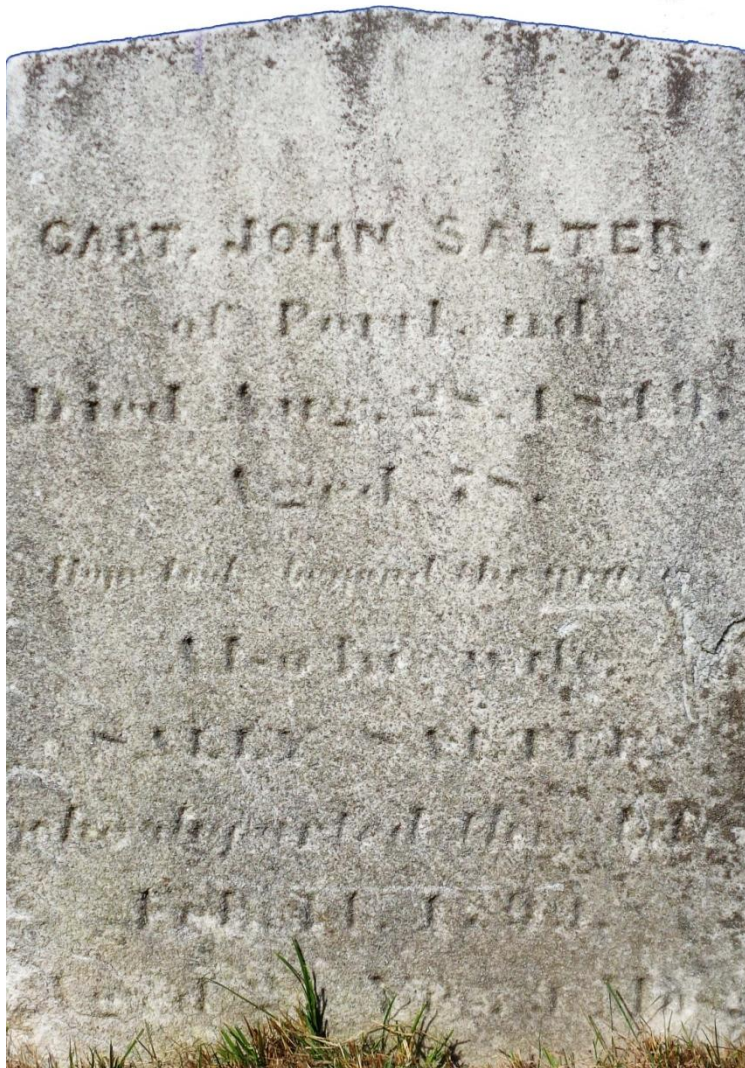 CAPT. JOHN SALTER.
of Portland,
Died Aug. 28, 1849.
Aged 78.
hope but beyond the grave
Also his wife,
SALLY SALTER
who departed this life
Feb. 11,